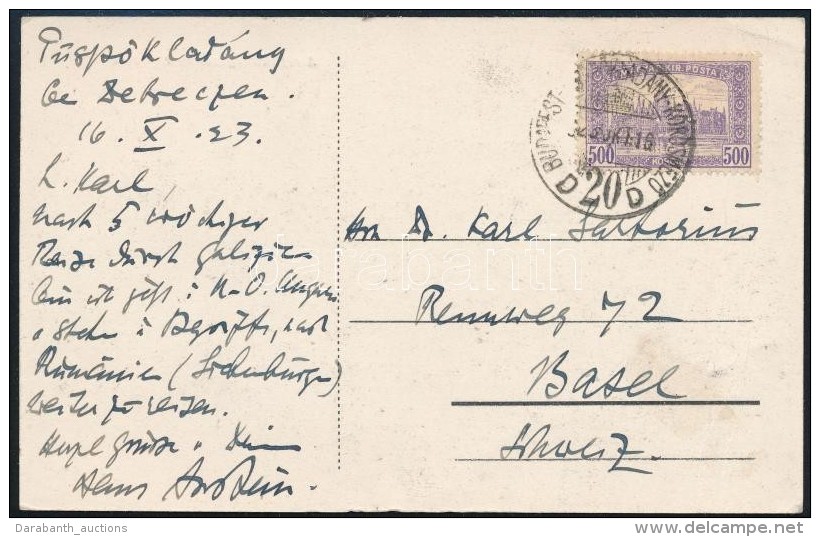 Püspökladány
bei Debreczen.
16. X. 23.
L. Karl,
nach 5 wöchiger
Reise durch Galizien
bin ich jetzt i. N-O. Ungarn
u. stehe i. Begriffe, nach
Rumänien (Siebenbürgen)
weiter zu reisen.
Herzl. Grüsse v. Deinem
Hans
MAGY. KIR. POSTA
500 500
BUDAPEST-
D 20 D
Hrn Dr. Karl Sartorius
Rennweg 72
Basel
Schweiz.
darabanth
Darabanth_auctions
delcampe.net